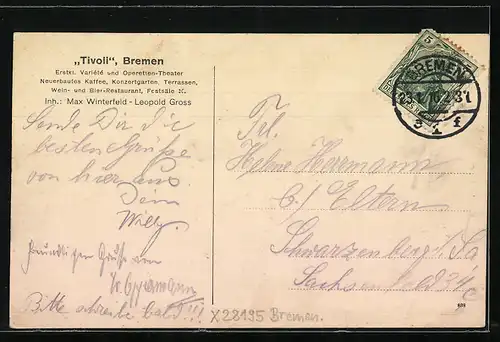 „Tivoli“, Bremen
Erstkl. Variété und Operetten-Theater
Neuerbautes Kaffee, Konzertgarten, Terrassen,
Wein- und Bier-Restaurant, Festsäle ꝛc.
Inh.: Max Winterfeld - Leopold Gross
Sende Dir die
besten Grüße
von hier aus
Dein
Willy.
Grüße von
Bitte schreibe bald!!!
X28195 Bremen.
5
BREMEN
5 1 f
Frl.
Helene Herrmann
b/ Eltern
Schwarzenberg i. Sa
Sachsenfeld 34c